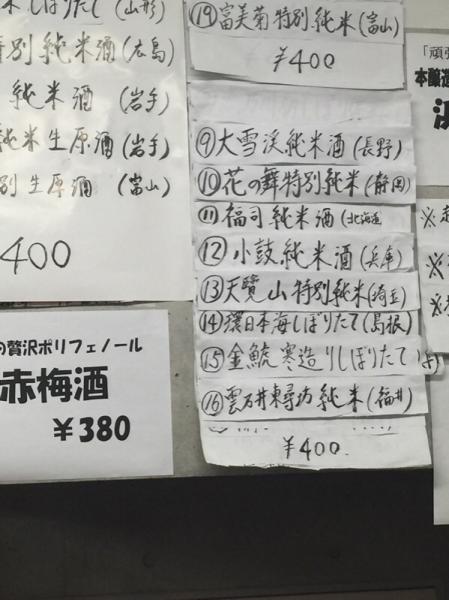 しぼりたて(山形)
別純米酒(広島)
純米酒(岩手)
純米生原酒(岩手)
別生原酒(富山)
400
の贅沢ポリフェノール
赤梅酒
¥380
⑲富美菊特別純米(富山)
¥400
⑨大雪渓純米酒(長野)
⑩花の舞特別純米(静岡)
⑪福司純米酒(北海道
⑫小鼓純米酒(兵庫)
⑬天覧山特別純米(埼玉)
⑭環日本海しぼりたて(島根)
⑮金鯱寒造りしぼりたて
⑯雲石井東尋坊純米(福井)
¥400
「頑張
本醸造
※
※
※